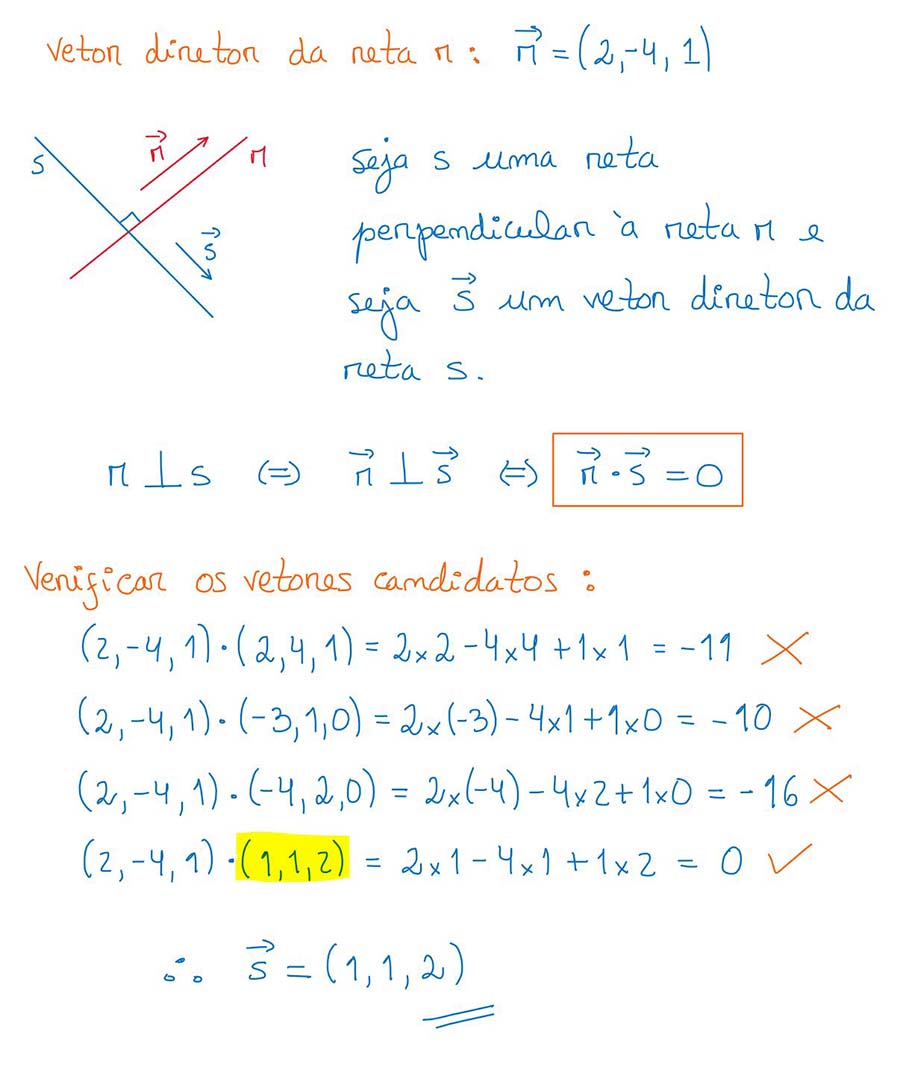 vetor diretor da reta r : r⃗ = (2,-4,1)
s r⃗ r s⃗
seja s uma reta
perpendicular à reta r e
seja s⃗ um vetor diretor da
reta s.
r ⊥ s ⇔ r⃗ ⊥ s⃗ ⇔ r⃗ · s⃗ = 0
Verificar os vetores candidatos :
(2,-4,1)·(2,4,1) = 2×2-4×4+1×1 = -11 ×
(2,-4,1)·(-3,1,0) = 2×(-3)-4×1+1×0 = -10 ×
(2,-4,1)·(-4,2,0) = 2×(-4)-4×2+1×0 = -16 ×
(2,-4,1)·(1,1,2) = 2×1-4×1+1×2 = 0 ✓
∴ s⃗ = (1,1,2)